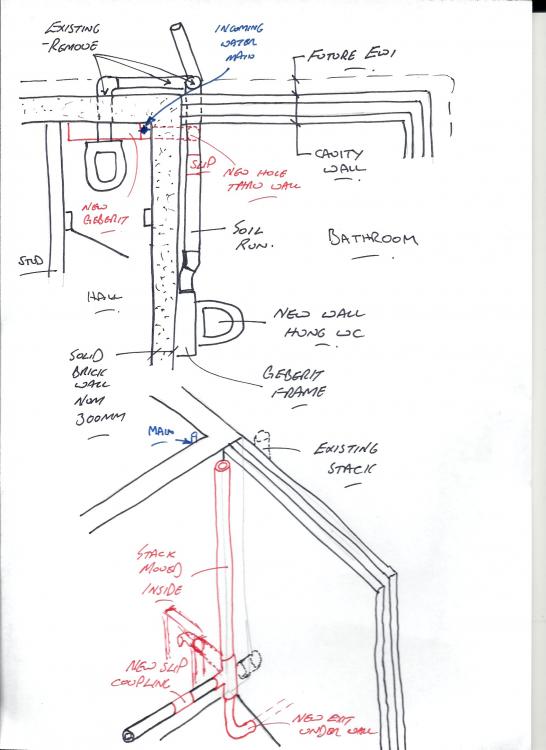 EXISTING
-REMOVE
INCOMING
WATER
MAIN
FUTURE EWI
SLIP
NEW HOLE
THRU WALL
CAVITY
WALL
NEW
GEBERIT
SOIL
RUN.
BATHROOM
STUD
HALL
NEW WALL
HUNG WC
SOLID
BRICK
WALL
NOM
300MM
GEBERIT
FRAME
MAIN
EXISTING
STACK
STACK
MOVED
INSIDE
NEW SLIP
COUPLING
NEW EXIT
UNDER WALL